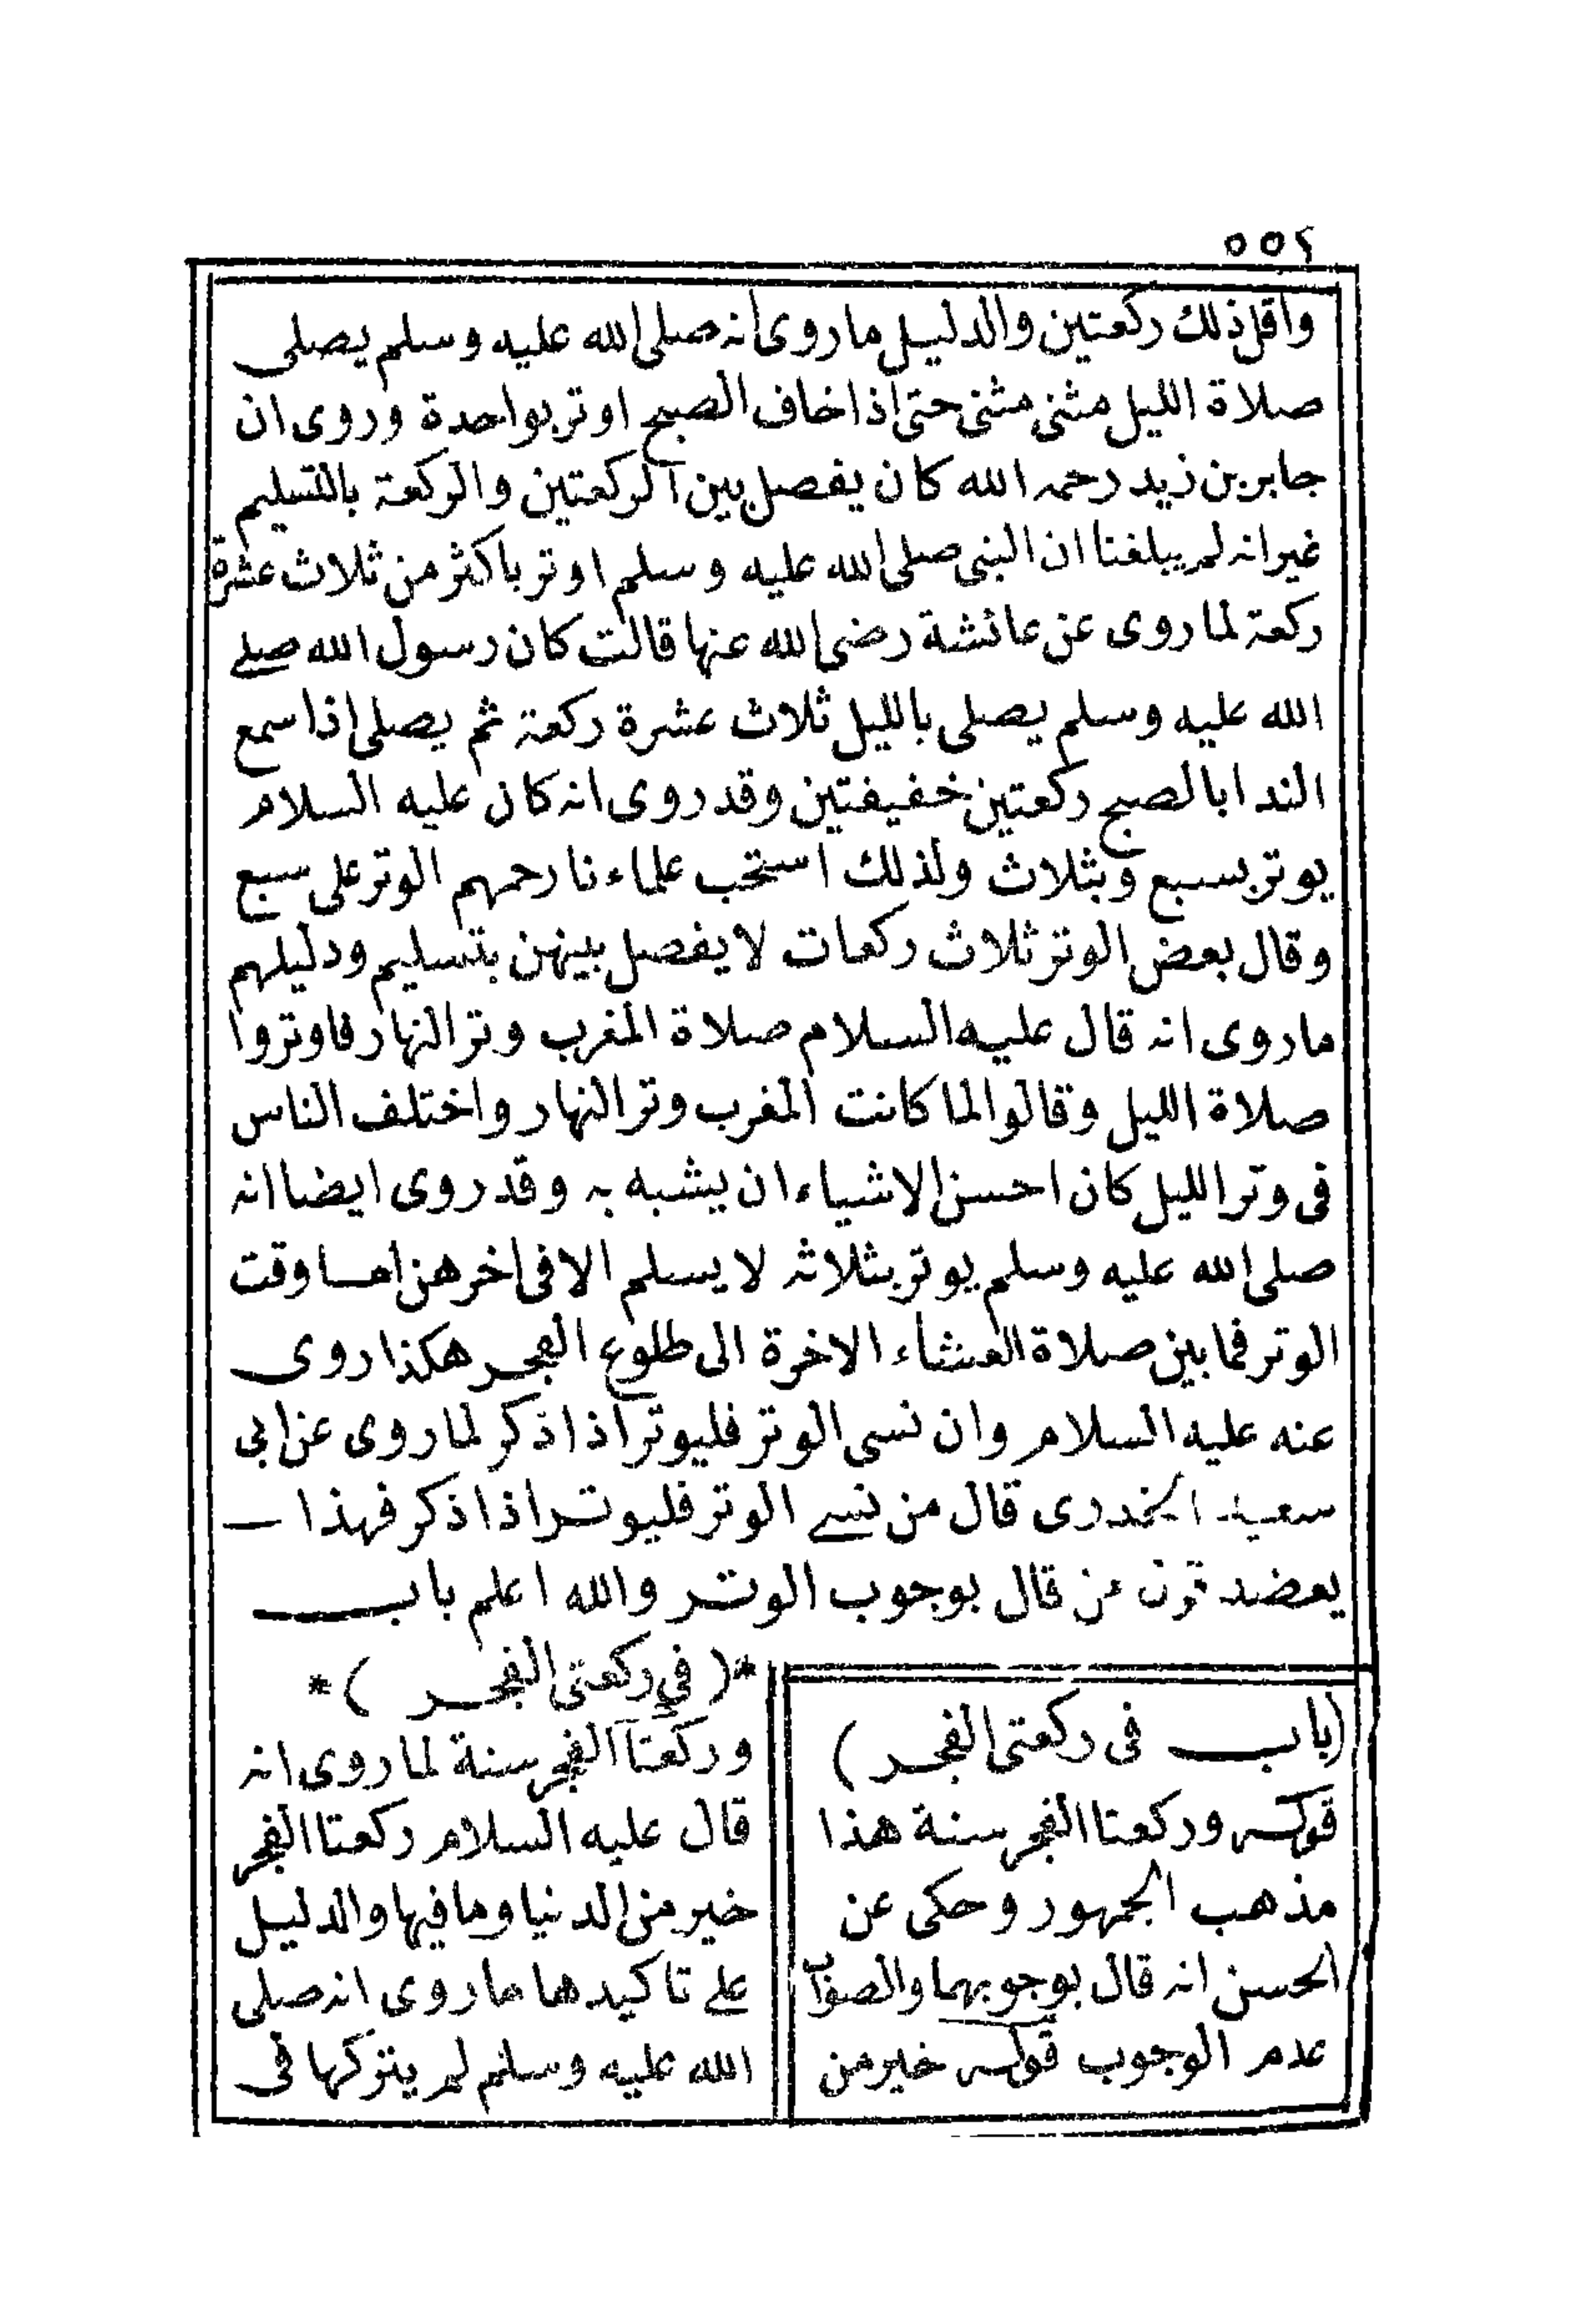 ٥٥٢
واقل ذلك ركعتين والدليل ما روى انه صلى الله عليه وسلم يصلى
صلاة الليل مثنى مثنى حتى اذا خاف الصبح اوتر بواحدة وروى ان
جابر بن زيد رحمه الله كان يفصل بين الركعتين والركعة بالتسليم
غير انه لم يبلغنا ان النبى صلى الله عليه وسلم اوتر باكثر من ثلاث عشرة
ركعة لما روى عن عائشة رضى الله عنها قالت كان رسول الله صلى
الله عليه وسلم يصلى بالليل ثلاث عشرة ركعة ثم يصلى اذا سمع
الندا بالصبح ركعتين خفيفتين وقد روى انه كان عليه السلام
يوتر بسبع وبثلاث ولذلك استحب علماءنا رحمهم الوتر على سبع
وقال بعض الوتر ثلاث ركعات لا يفصل بينهن بتسليم ودليلهم
ما روى انه قال عليه السلام صلاة المغرب وتر النهار فاوتروا
صلاة الليل وقالوا لما كانت المغرب وتر النهار واختلف الناس
فى وتر الليل كان احسن الاشياء ان يشبه به وقد روى ايضا انه
صلى الله عليه وسلم يوتر بثلاثه لا يسلم الا فى اخرهن اما وقت
الوتر فما بين صلاة العشاء الاخرة الى طلوع الفجر هكذا روى
عنه عليه السلام وان نسى الوتر فليوتر اذا ذكر لما روى عن ابى
سعيد الخدرى قال من نسى الوتر فليوتر اذا ذكر فهذا
يعضد قول من قال بوجوب الوتر والله اعلم باب
*( فى ركعتى الفجر )*
وركعتا الفجر سنة لما روى انه
قال عليه السلام ركعتا الفجر
خير من الدنيا وما فيها والدليل
على تاكيدها ما روى انه صلى
الله عليه وسلم لم يتركها فى
(باب فى ركعتى الفجر )
قوله وركعتا الفجر سنة هذا
مذهب الجمهور وحكى عن
الحسن انه قال بوجوبهما والصواب
عدم الوجوب قوله خير من